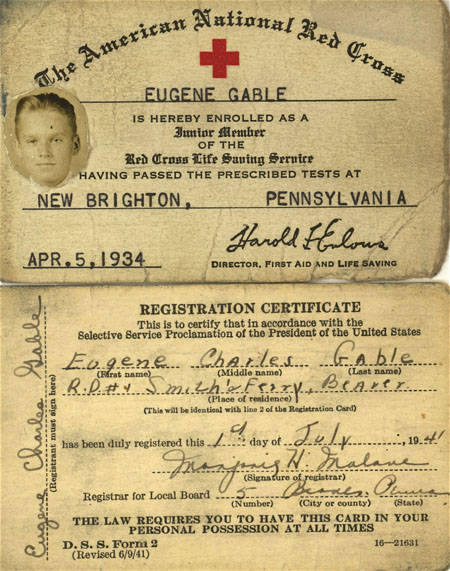 The American National Red Cross
EUGENE GABLE
IS HEREBY ENROLLED AS A
Junior Member
OF THE
Red Cross Life Saving Service
HAVING PASSED THE PRESCRIBED TESTS AT
NEW BRIGHTON, PENNSYLVANIA
Harold F Enlows
APR. 5, 1934
DIRECTOR, FIRST AID AND LIFE SAVING
REGISTRATION CERTIFICATE
This is to certify that in accordance with the
Selective Service Proclamation of the President of the United States
Eugene Charles Gable
(First name) (Middle name) (Last name)
R.D.#4 Smith's Ferry, Beaver
(Place of residence)
(This will be identical with line 2 of the Registration Card)
has been duly registered this 1st day of July, 1941
Marjorie H. Malone
(Signature of registrar)
Registrar for Local Board 5 Beaver Penna
(Number) (City or county) (State)
THE LAW REQUIRES YOU TO HAVE THIS CARD IN YOUR
PERSONAL POSSESSION AT ALL TIMES
D. S. S. Form 2
(Revised 6/9/41) 16—21631
Eugene Charles Gable
(Registrant must sign here)